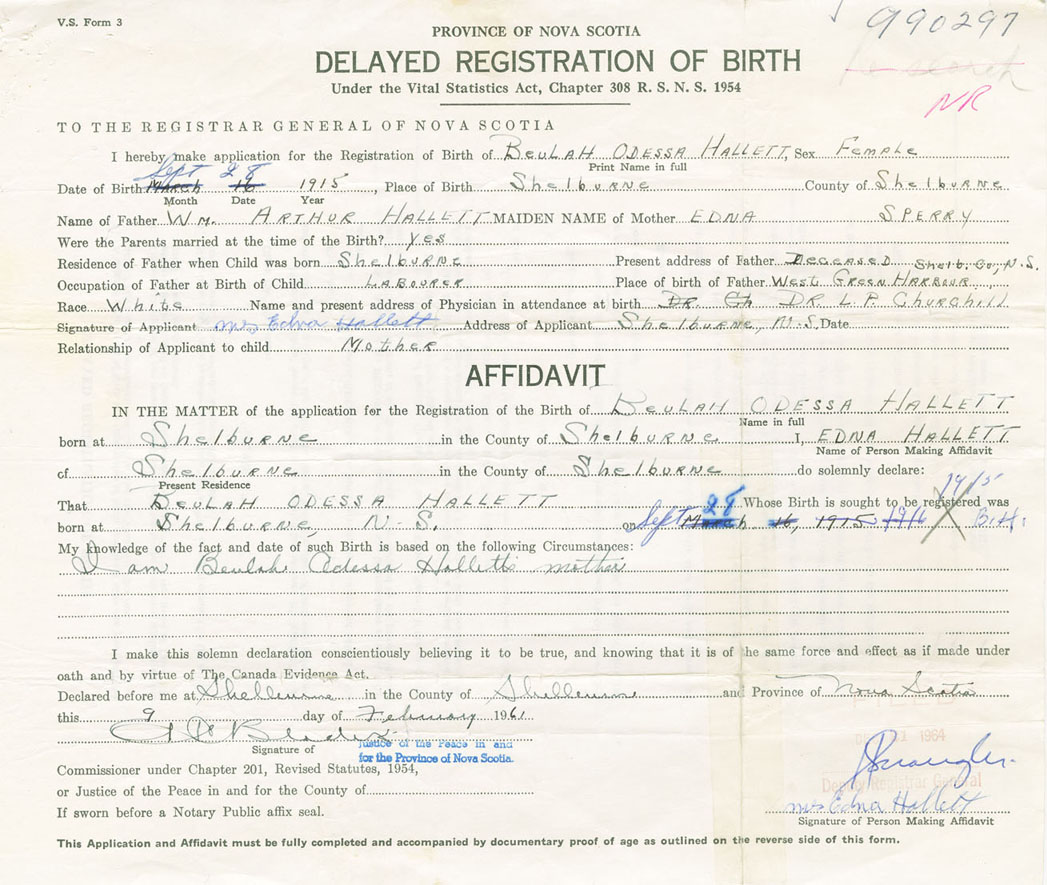 V.S. Form 3
990297
PROVINCE OF NOVA SCOTIA
DELAYED REGISTRATION OF BIRTH
Under the Vital Statistics Act, Chapter 308 R. S. N. S. 1954
NR
TO THE REGISTRAR GENERAL OF NOVA SCOTIA
I hereby make application for the Registration of Birth of BEULAH ODESSA HALLETT, Sex Female
Print Name in full
Sept 28
Date of Birth March 16 1915, Place of Birth Shelburne County of Shelburne
Month Date Year
Name of Father Wm. ARTHUR HALLETT MAIDEN NAME of Mother EDNA SPERRY
Were the Parents married at the time of the Birth? yes
Residence of Father when Child was born Shelburne Present address of Father Deceased Shelb. Co, N.S.
Occupation of Father at Birth of Child LABOURER Place of birth of Father West Green Harbour
Race White Name and present address of Physician in attendance at birth DR Ch DR L P Churchill
Signature of Applicant Mrs Edna Hallett Address of Applicant Shelburne, N.S. Date
Relationship of Applicant to child Mother
AFFIDAVIT
IN THE MATTER of the application for the Registration of the Birth of BEULAH ODESSA HALLETT
Name in full
born at Shelburne in the County of Shelburne I, EDNA HALLETT
Name of Person Making Affidavit
of Shelburne in the County of Shelburne do solemnly declare:
Present Residence
1915
That BEULAH ODESSA HALLETT Whose Birth is sought to be registered was
born at Shelburne, N.S. on Sept 28 March 16, 1915 1916
My knowledge of the fact and date of such Birth is based on the following Circumstances:
I am Beulah Odessa Hallett's mother
I make this solemn declaration conscientiously believing it to be true, and knowing that it is of the same force and effect as if made under
oath and by virtue of The Canada Evidence Act.
Declared before me at Shelburne in the County of Shelburne and Province of Nova Scotia
this 9 day of February 1961
Signature of
Justice of the Peace in and
for the Province of Nova Scotia.
1964
Commissioner under Chapter 201, Revised Statutes, 1954,
Deputy Registrar General
or Justice of the Peace in and for the County of
Mrs Edna Hallett
If sworn before a Notary Public affix seal.
Signature of Person Making Affidavit
This Application and Affidavit must be fully completed and accompanied by documentary proof of age as outlined on the reverse side of this form.